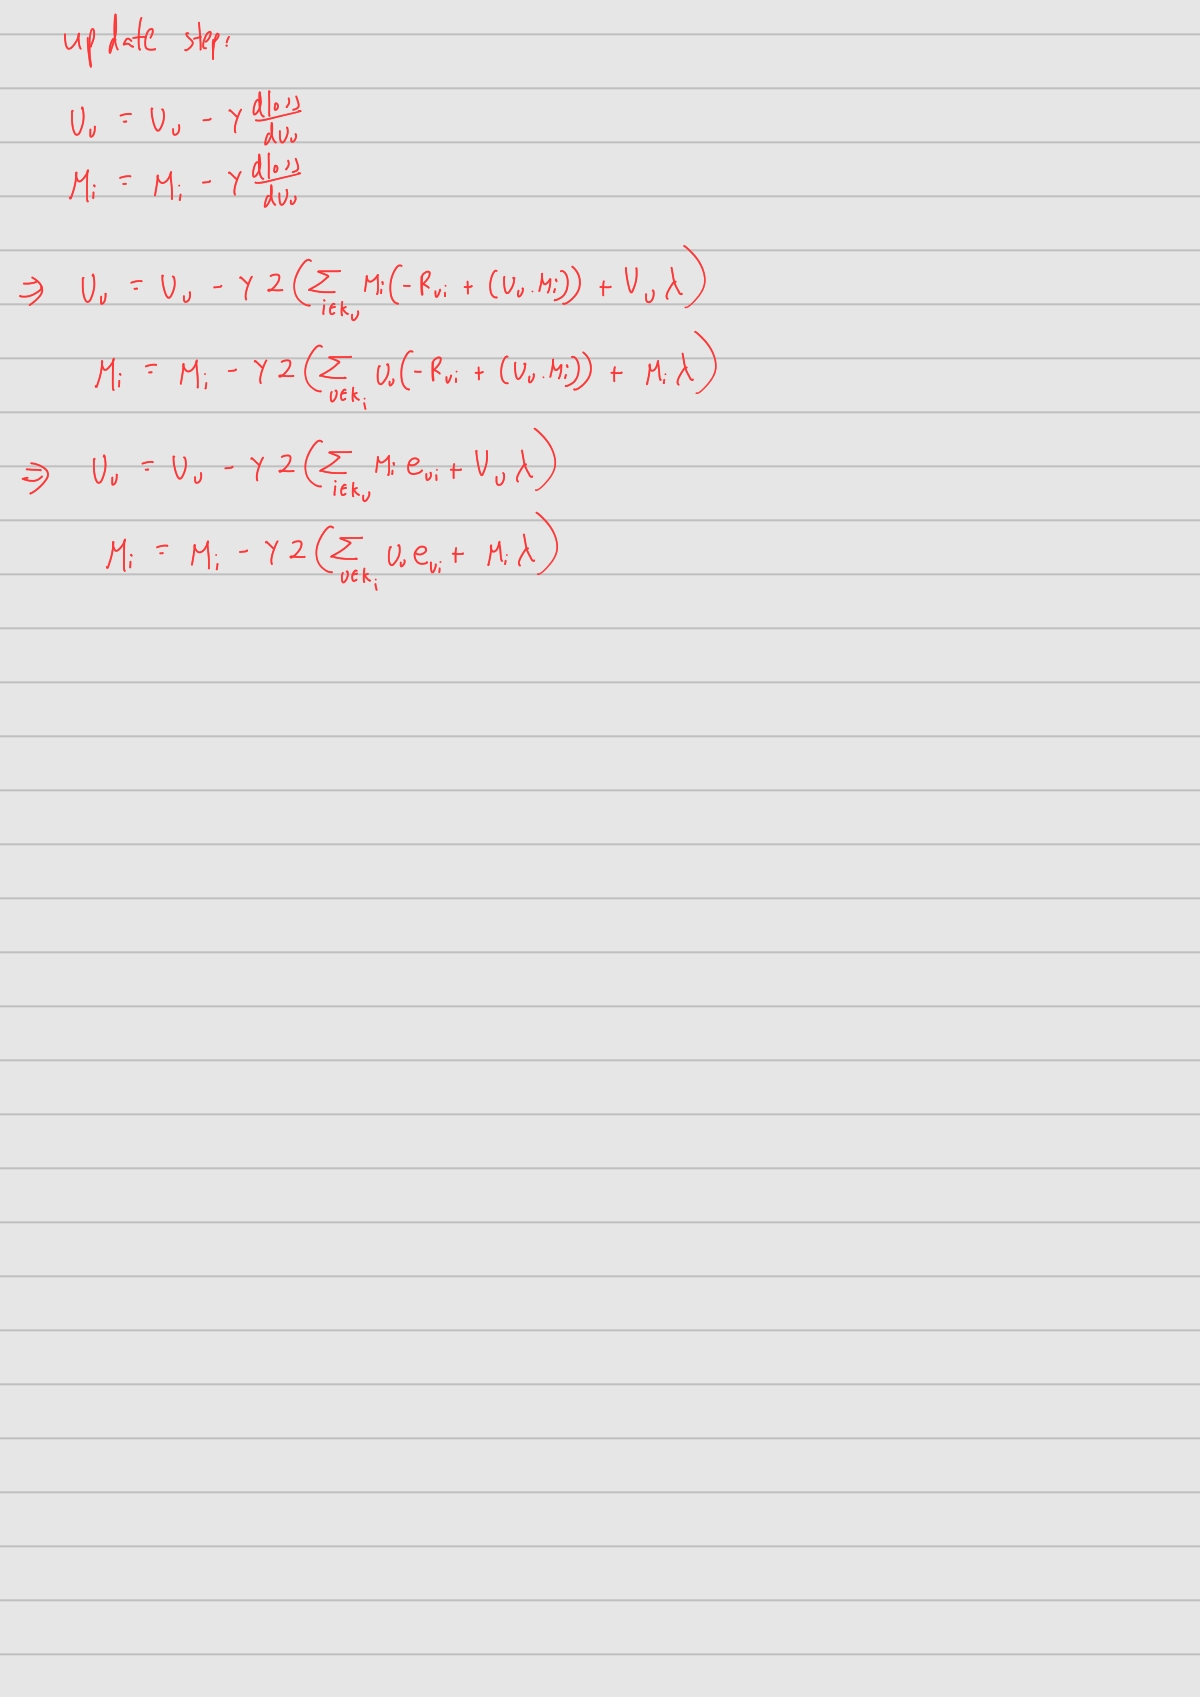 update step:
U_u = U_u - γ dloss/dU_u
M_i = M_i - γ dloss/dU_u
⇒ U_u = U_u - γ 2 ( Σ_{i∈k_u} M_i (-R_{ui} + (U_u . M_i)) + U_u λ )
M_i = M_i - γ 2 ( Σ_{u∈k_i} U_u (-R_{ui} + (U_u . M_i)) + M_i λ )
⇒ U_u = U_u - γ 2 ( Σ_{i∈k_u} M_i e_{ui} + U_u λ )
M_i = M_i - γ 2 ( Σ_{u∈k_i} U_u e_{ui} + M_i λ )